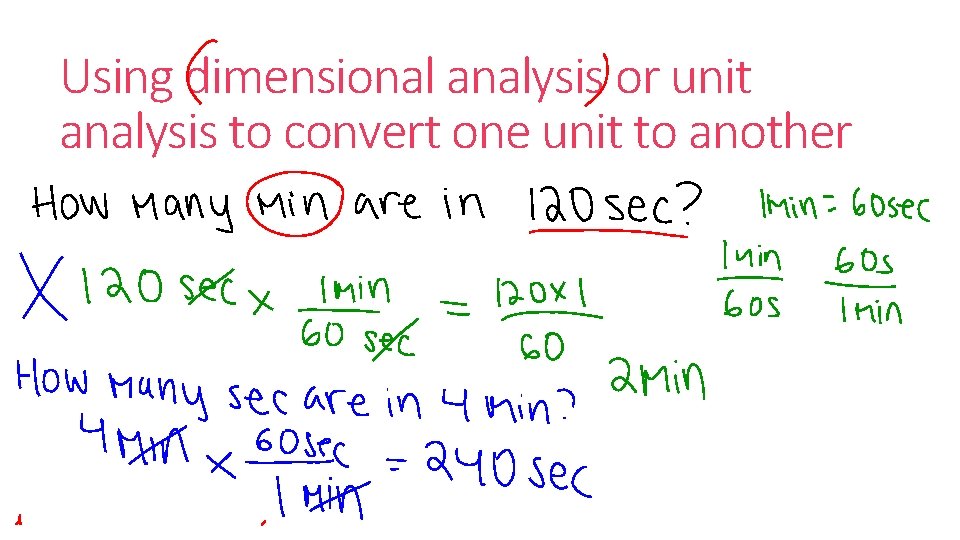 Using dimensional analysis or unit
analysis to convert one unit to another
How Many Min are in 120 sec?
1Min = 60sec
1 min 60s
60s 1 Min
X 120 sec x 1 Min = 120x1
60 sec 60
2 Min
How Many sec are in 4 Min?
4 Min x 60sec = 240 sec
1 Min